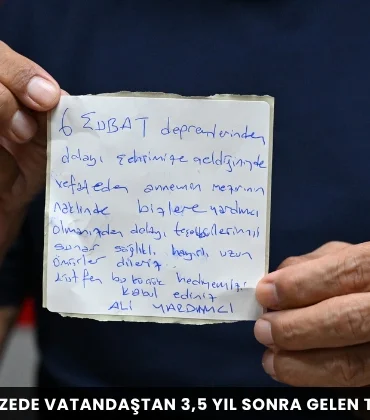 6 ŞUBAT depremlerinden
dolayı şehrimize geldiğinizde
vefat eden annemin mezarının
naklinde bizlere yardımcı
olmanızdan dolayı teşekkürlerimizi
sunar sağlıklı hayırlı uzun
ömürler dileriz.
Lütfen bu küçük hediyemizi
kabul ediniz
ALİ YARDIMCI
ZEDE VATANDAŞTAN 3,5 YIL SONRA GELEN T